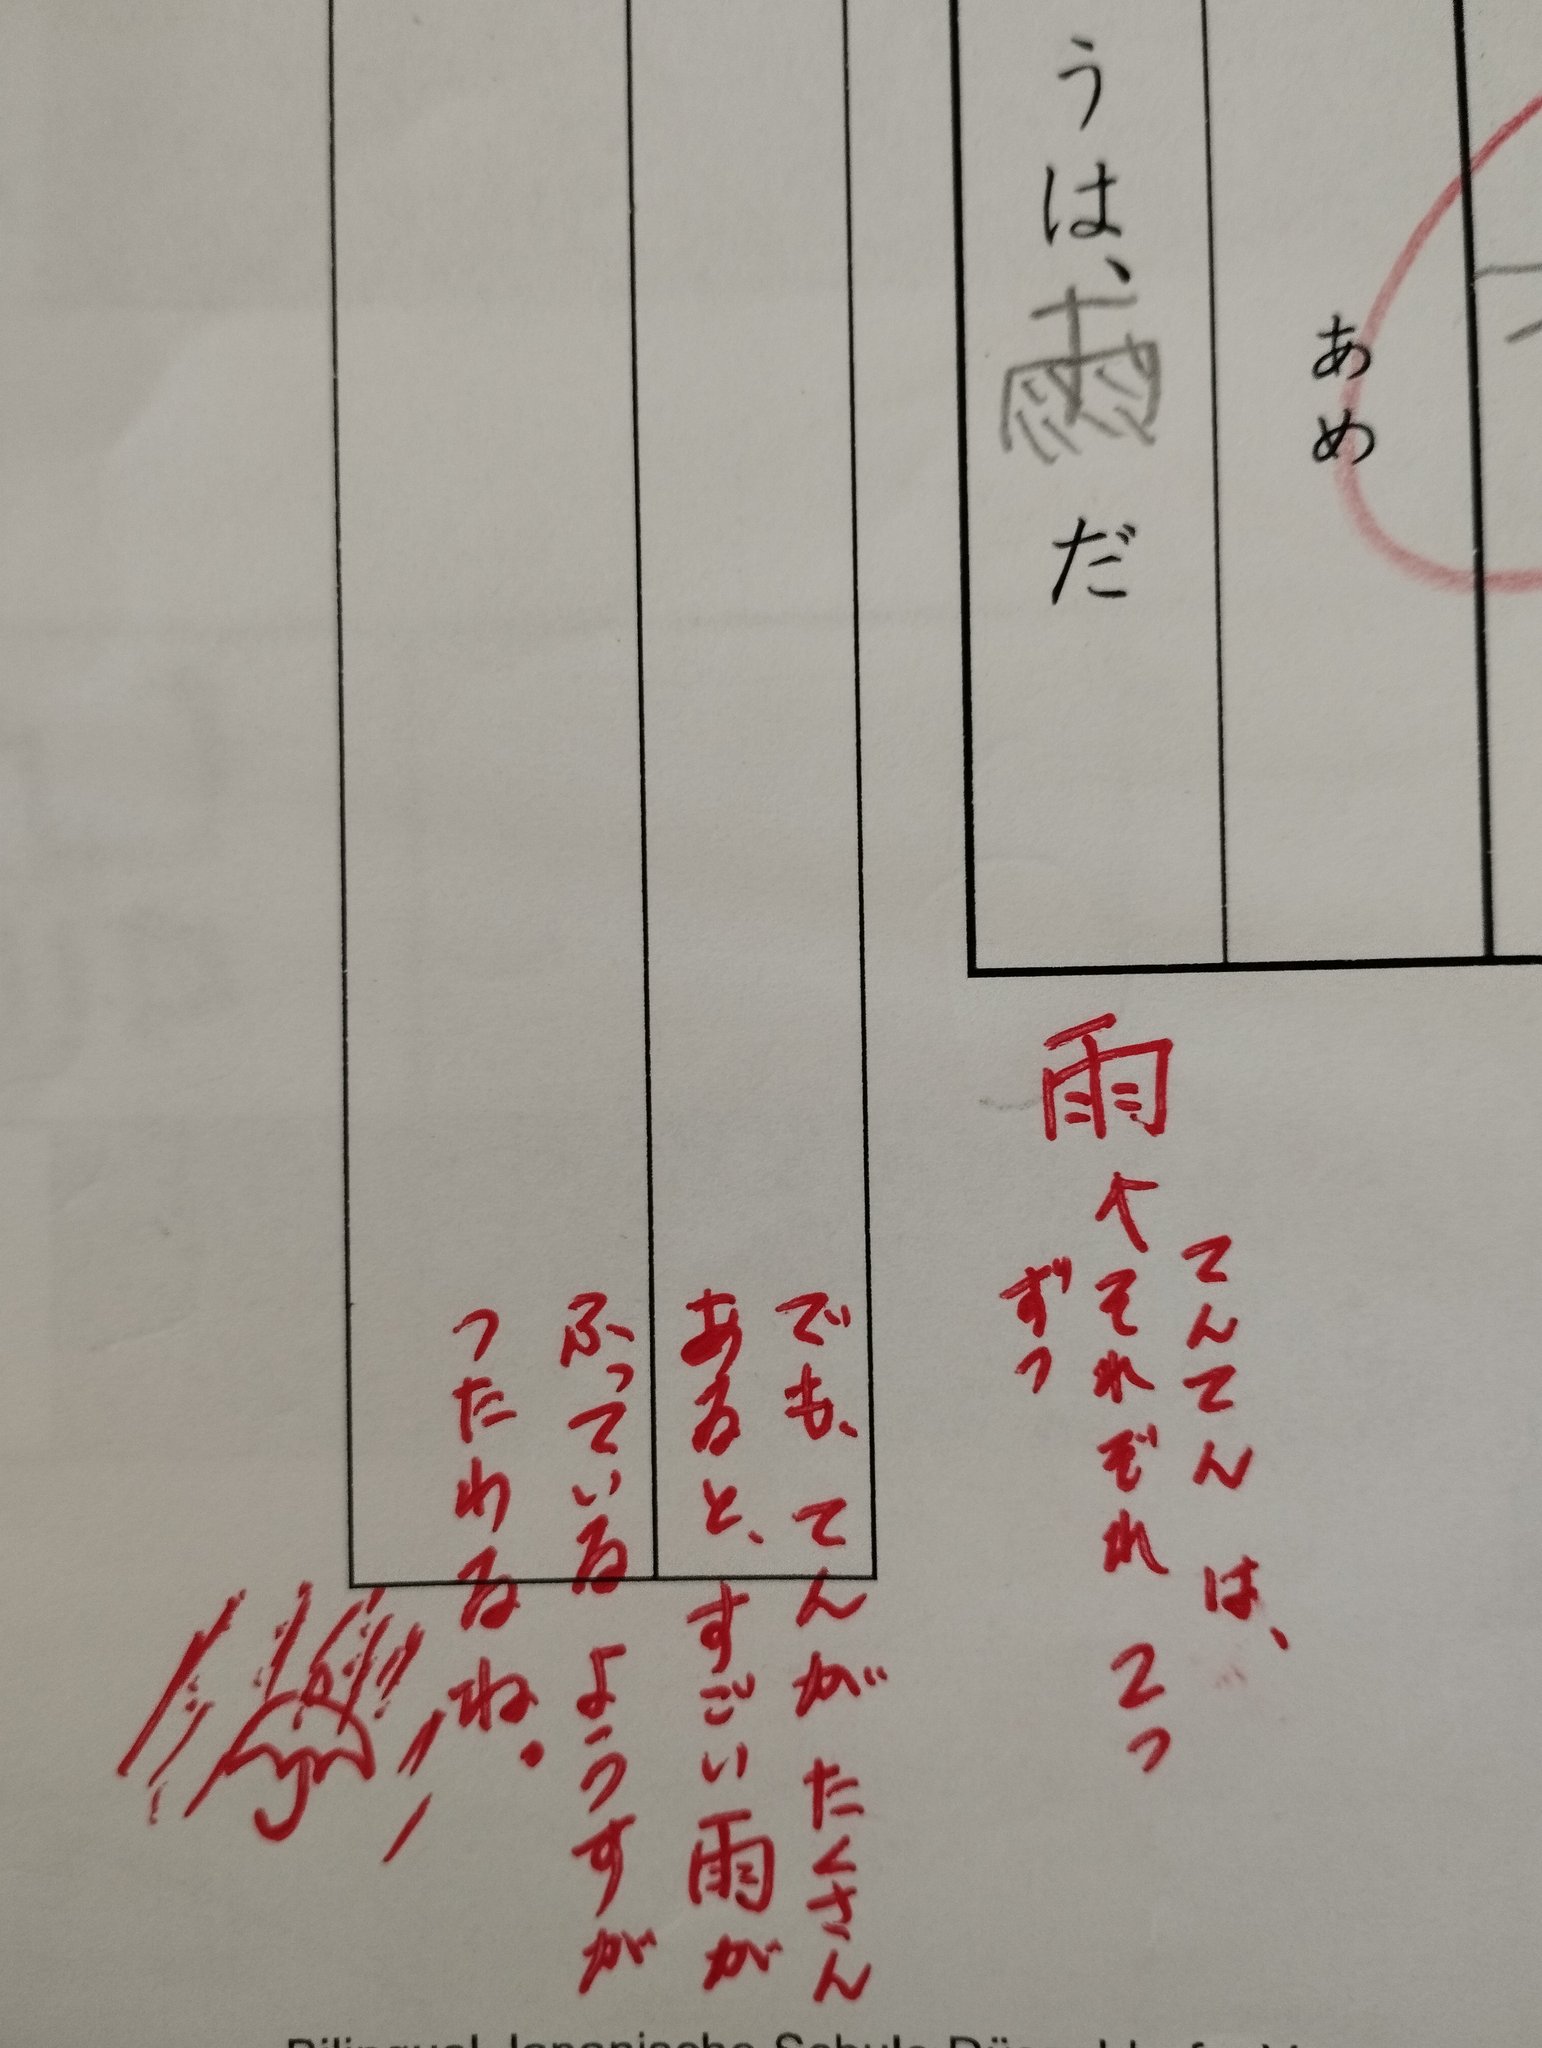 あめ
うは、雨だ
雨
てんてんは、
↑それぞれ2つ
ずつ
でも、てんがたくさん
あると、すごい雨が
ふっているようすが
つたわるね。